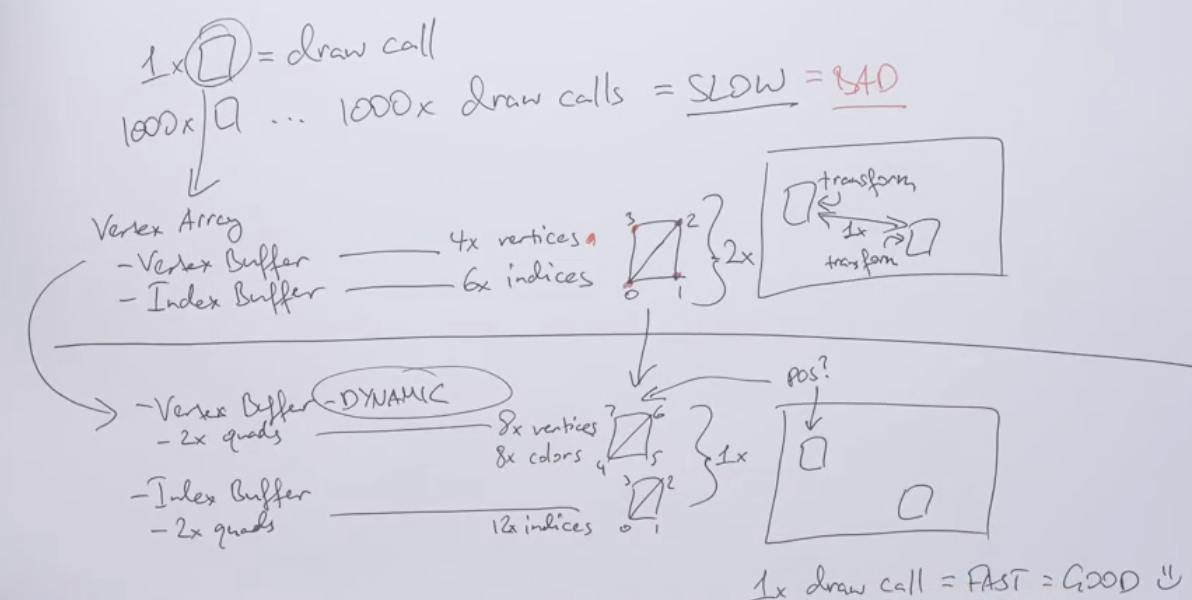 1x = draw call
1000x ... 1000x draw calls = SLOW = BAD
Vertex Array
- Vertex Buffer 4x vertices
- Index Buffer 6x indices
3 2
0 1
2x
transform
1x
transform
- Vertex Buffer - DYNAMIC
- 2x quads 8x vertices
8x colors
7 6
4 5
- Index Buffer
- 2x quads 12x indices
3 2
0 1
1x
pos?
1x draw call = FAST = GOOD